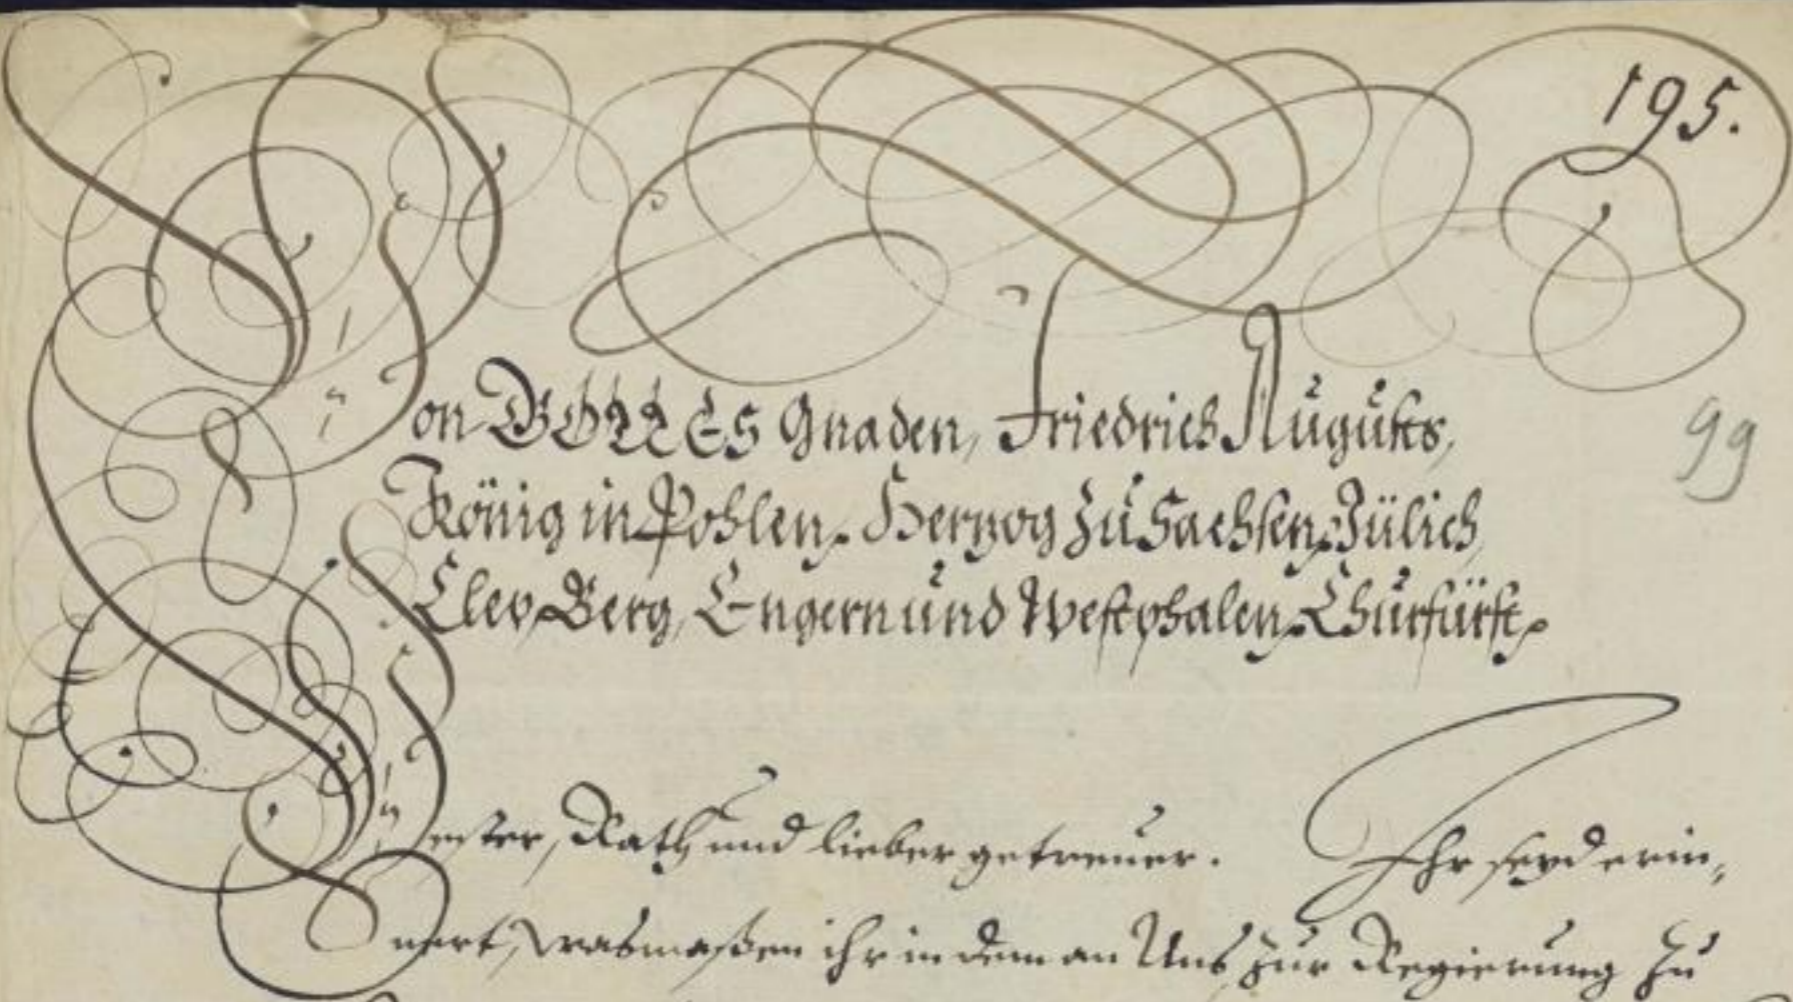 195.
99
Von GOTTES Gnaden, Friedrich Augustus,
König in Pohlen, Hertzog zu Sachßen, Jülich,
Cleve, Berg, Engern und Westphalen, Churfürst,
Vester, Rath und lieber getreuer. Ihr seyd erin-
nert, wasmaßen ihr in dem an Uns zur Regierung zu